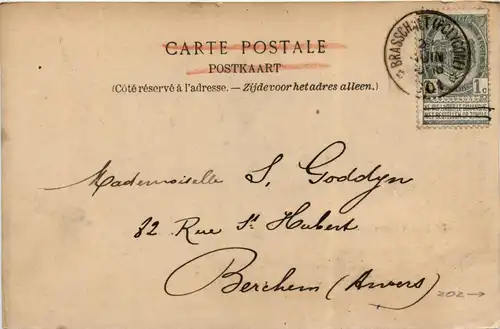 CARTE POSTALE
POSTKAART
(Côté réservé à l'adresse. — Zijde voor het adres alleen.)
BRASSCHAET (POLYGONE)
2
JUIN
1901
1c
Mademoiselle S. Goddyn
32 Rue St Hubert
Berchem (Anvers)
202→